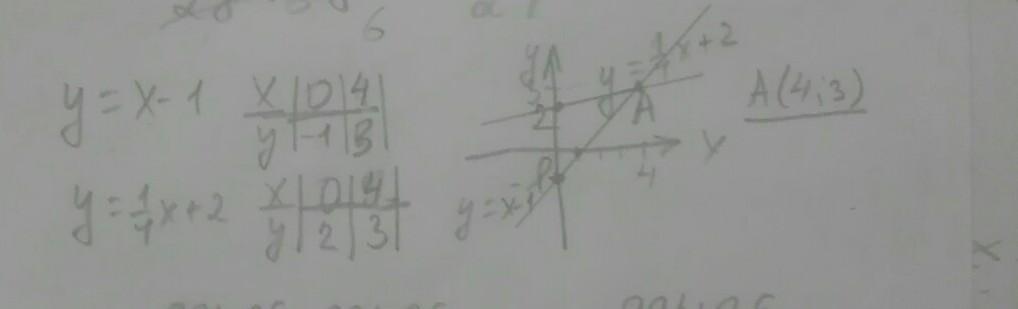 6
y = x - 1
x | 0 | 4
y | -1 | 3
y = 1/4 x + 2
x | 0 | 4
y | 2 | 3
y
y = 1/4 x + 2
2
A
x
4
y = x - 1
A(4;3)